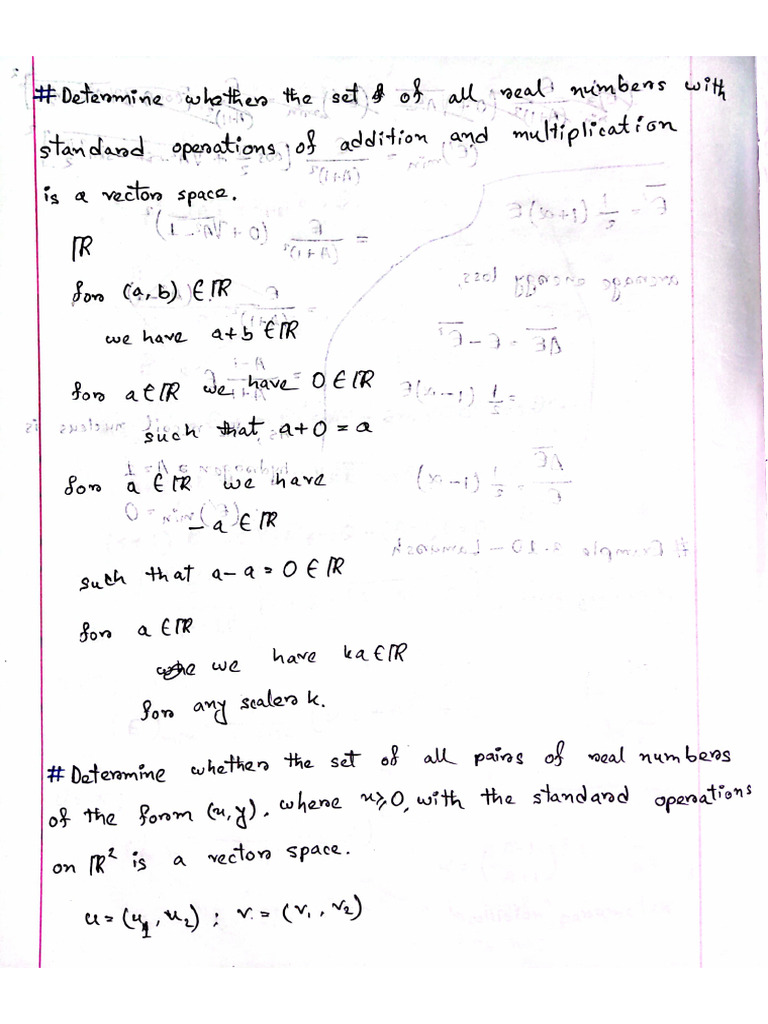 # Determine whether the set of all real numbers with
standard operations of addition and multiplication
is a vector space.
ℝ
for (a, b) ∈ ℝ
we have a+b ∈ ℝ
for a ∈ ℝ we have 0 ∈ ℝ
such that, a+0 = a
for a ∈ ℝ we have
-a ∈ ℝ
such that a-a = 0 ∈ ℝ
for a ∈ ℝ
we have ka ∈ ℝ
for any scaler k.
# Determine whether the set of all pairs of real numbers
of the form (x, y), where x≥0, with the standard operations
on ℝ² is a vector space.
u = (u₁, u₂) ; v = (v₁, v₂)